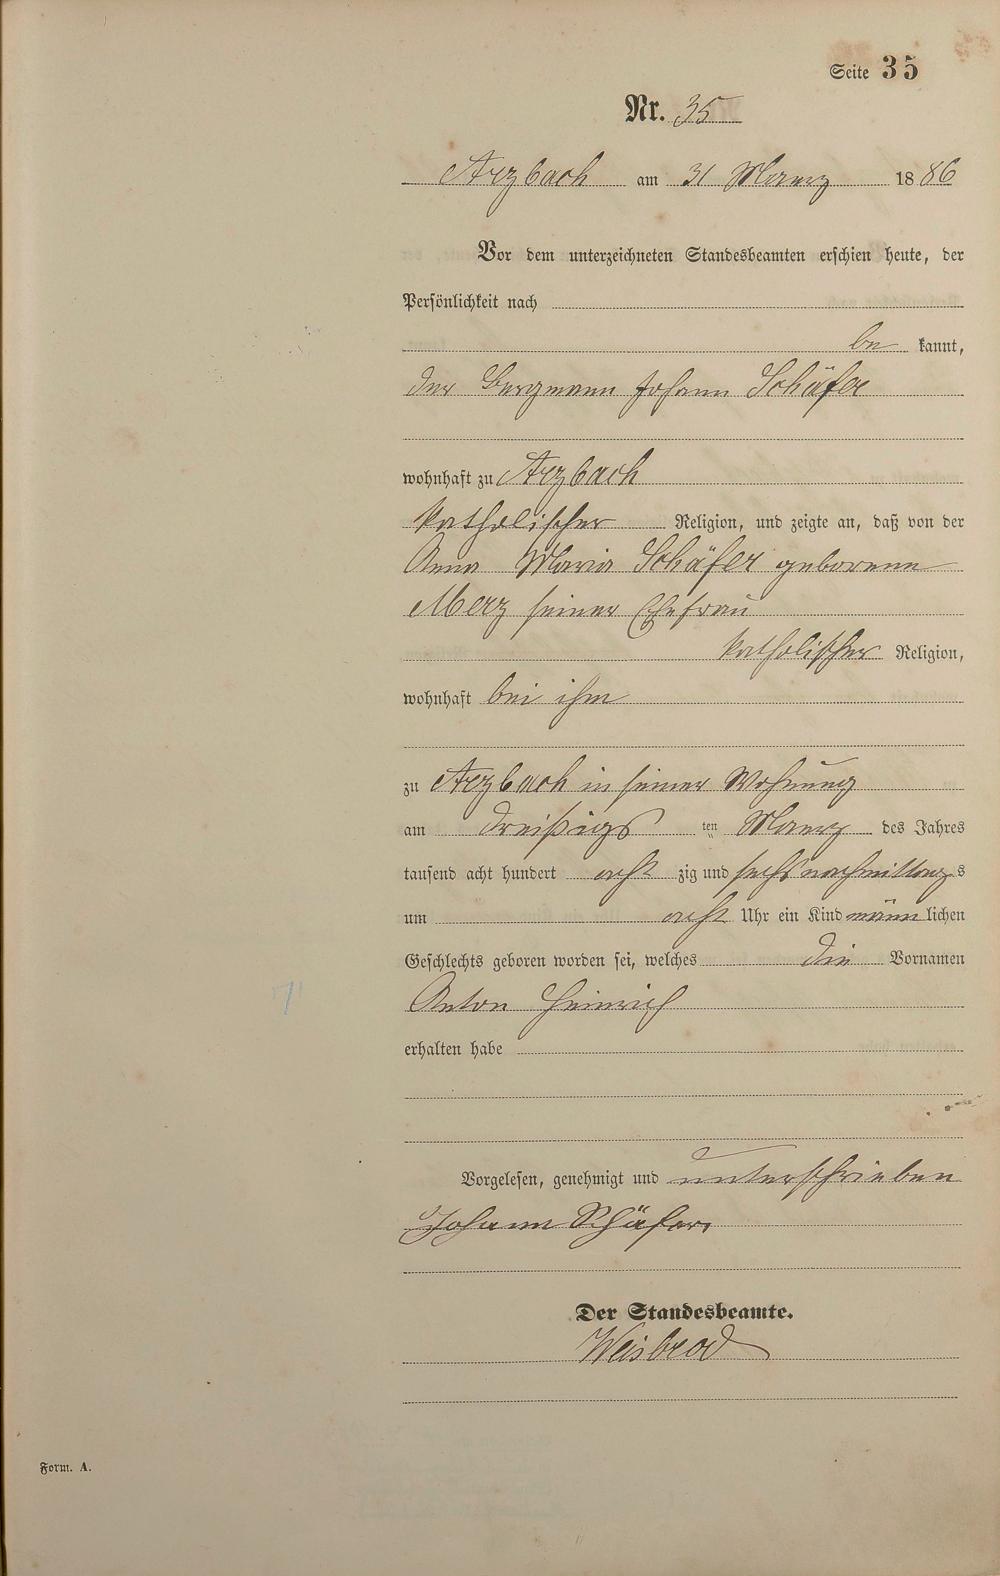 Seite 35
Nr. 35
Arzbach am 31 Maerz 1886
Vor dem unterzeichneten Standesbeamten erschien heute, der
Persönlichkeit nach
be kannt,
der Bergmann Johann Schäfer
wohnhaft zu Arzbach
katholischer Religion, und zeigte an, daß von der
Anna Maria Schäfer geborene
Merz seiner Ehefrau
katholischer Religion,
wohnhaft bei ihm
zu Arzbach in seiner Wohnung
am dreißigs ten Maerz des Jahres
tausend acht hundert acht zig und sechs nachmittags
um acht Uhr ein Kind männlichen
Geschlechts geboren worden sei, welches die Vornamen
Anton Heinrich
erhalten habe
Vorgelesen, genehmigt und unterschrieben
Johann Schäfer
Der Standesbeamte.
Weisbrod
Form. A.